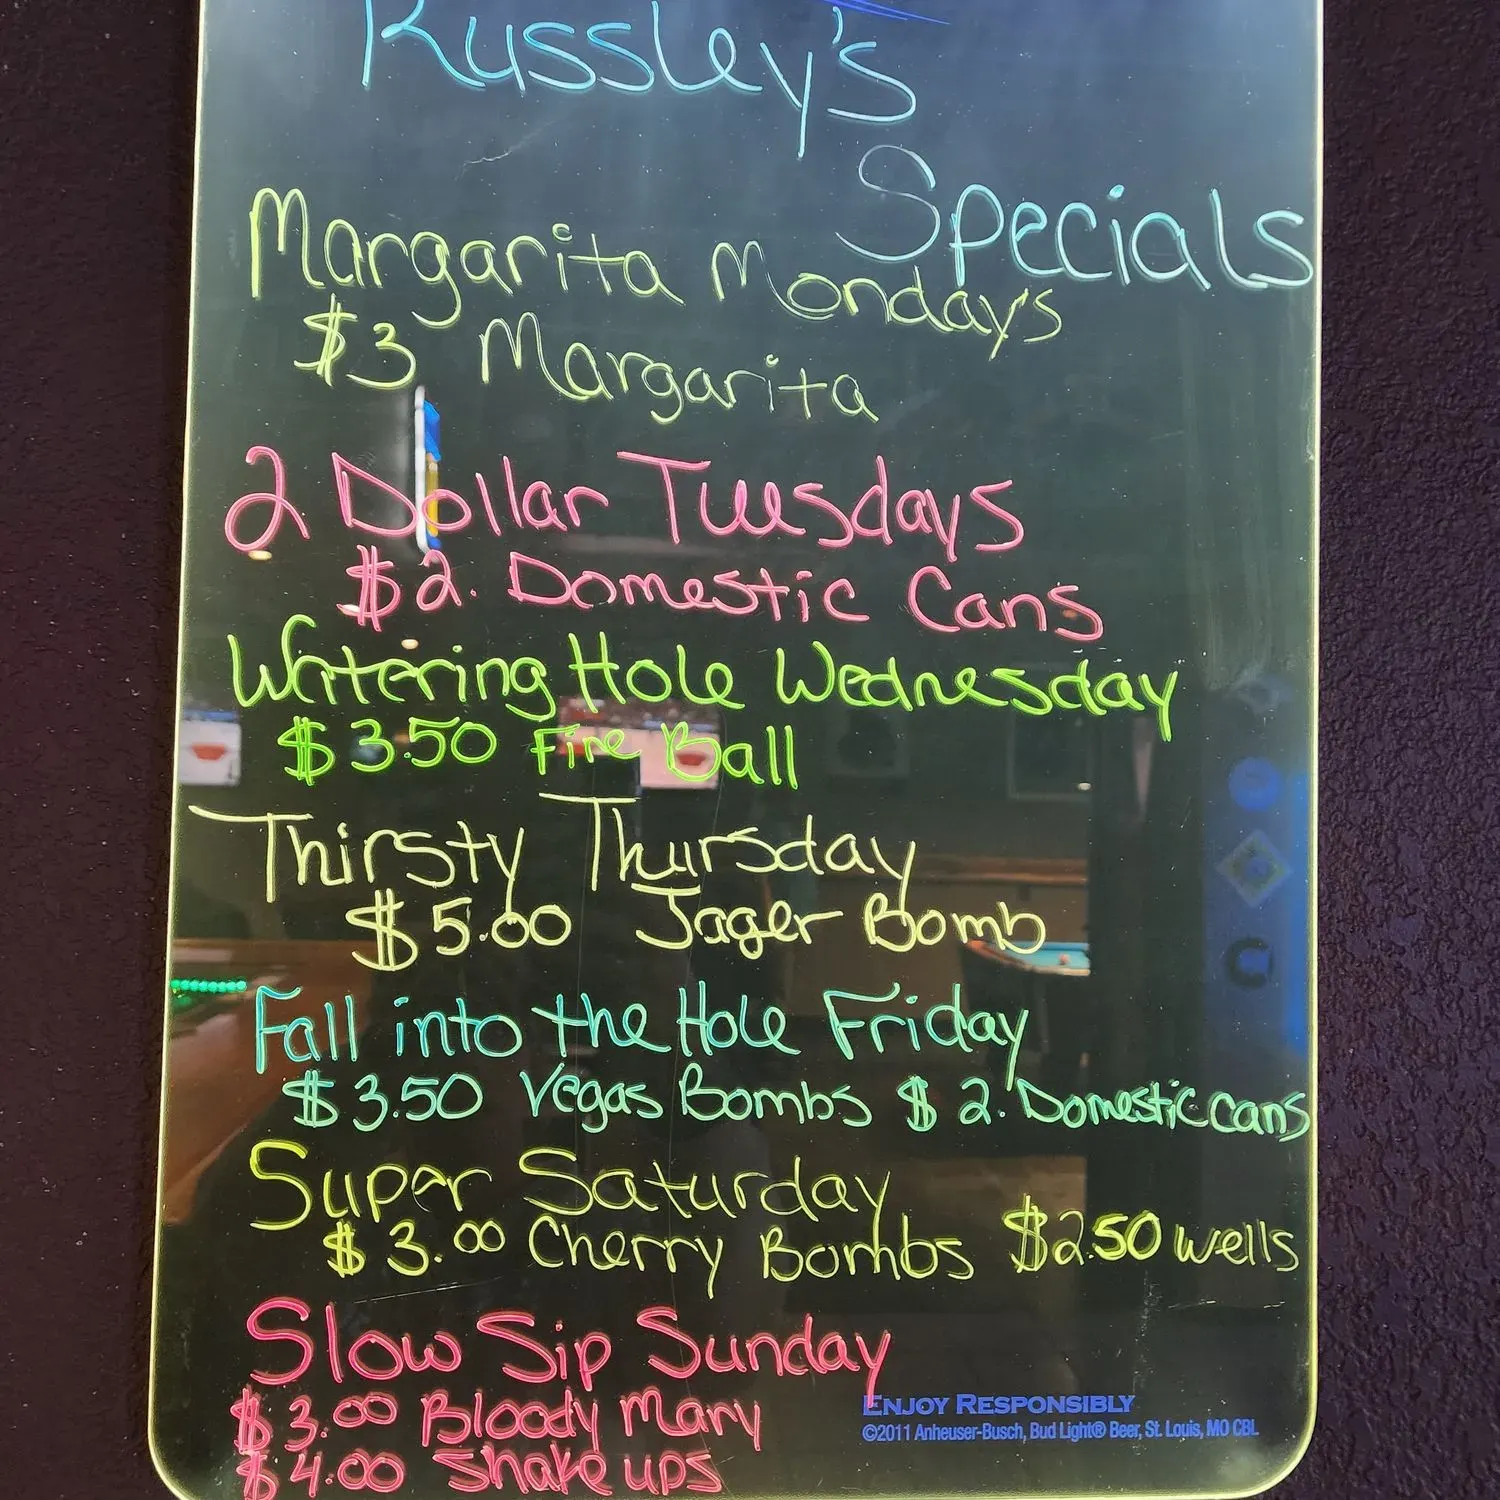 Russley's
Specials
Margarita Mondays
$3 Margarita
2 Dollar Tuesdays
$2. Domestic Cans
Watering Hole Wednesday
$3.50 Fire Ball
Thirsty Thursday
$5.00 Jager Bomb
Fall into the Hole Friday
$3.50 Vegas Bombs $2. Domestic cans
Super Saturday
$3.00 Cherry Bombs $2.50 wells
Slow Sip Sunday
$3.00 Bloody Mary
$4.00 Shake ups
ENJOY RESPONSIBLY
©2011 Anheuser-Busch, Bud Light® Beer, St. Louis, MO CBL